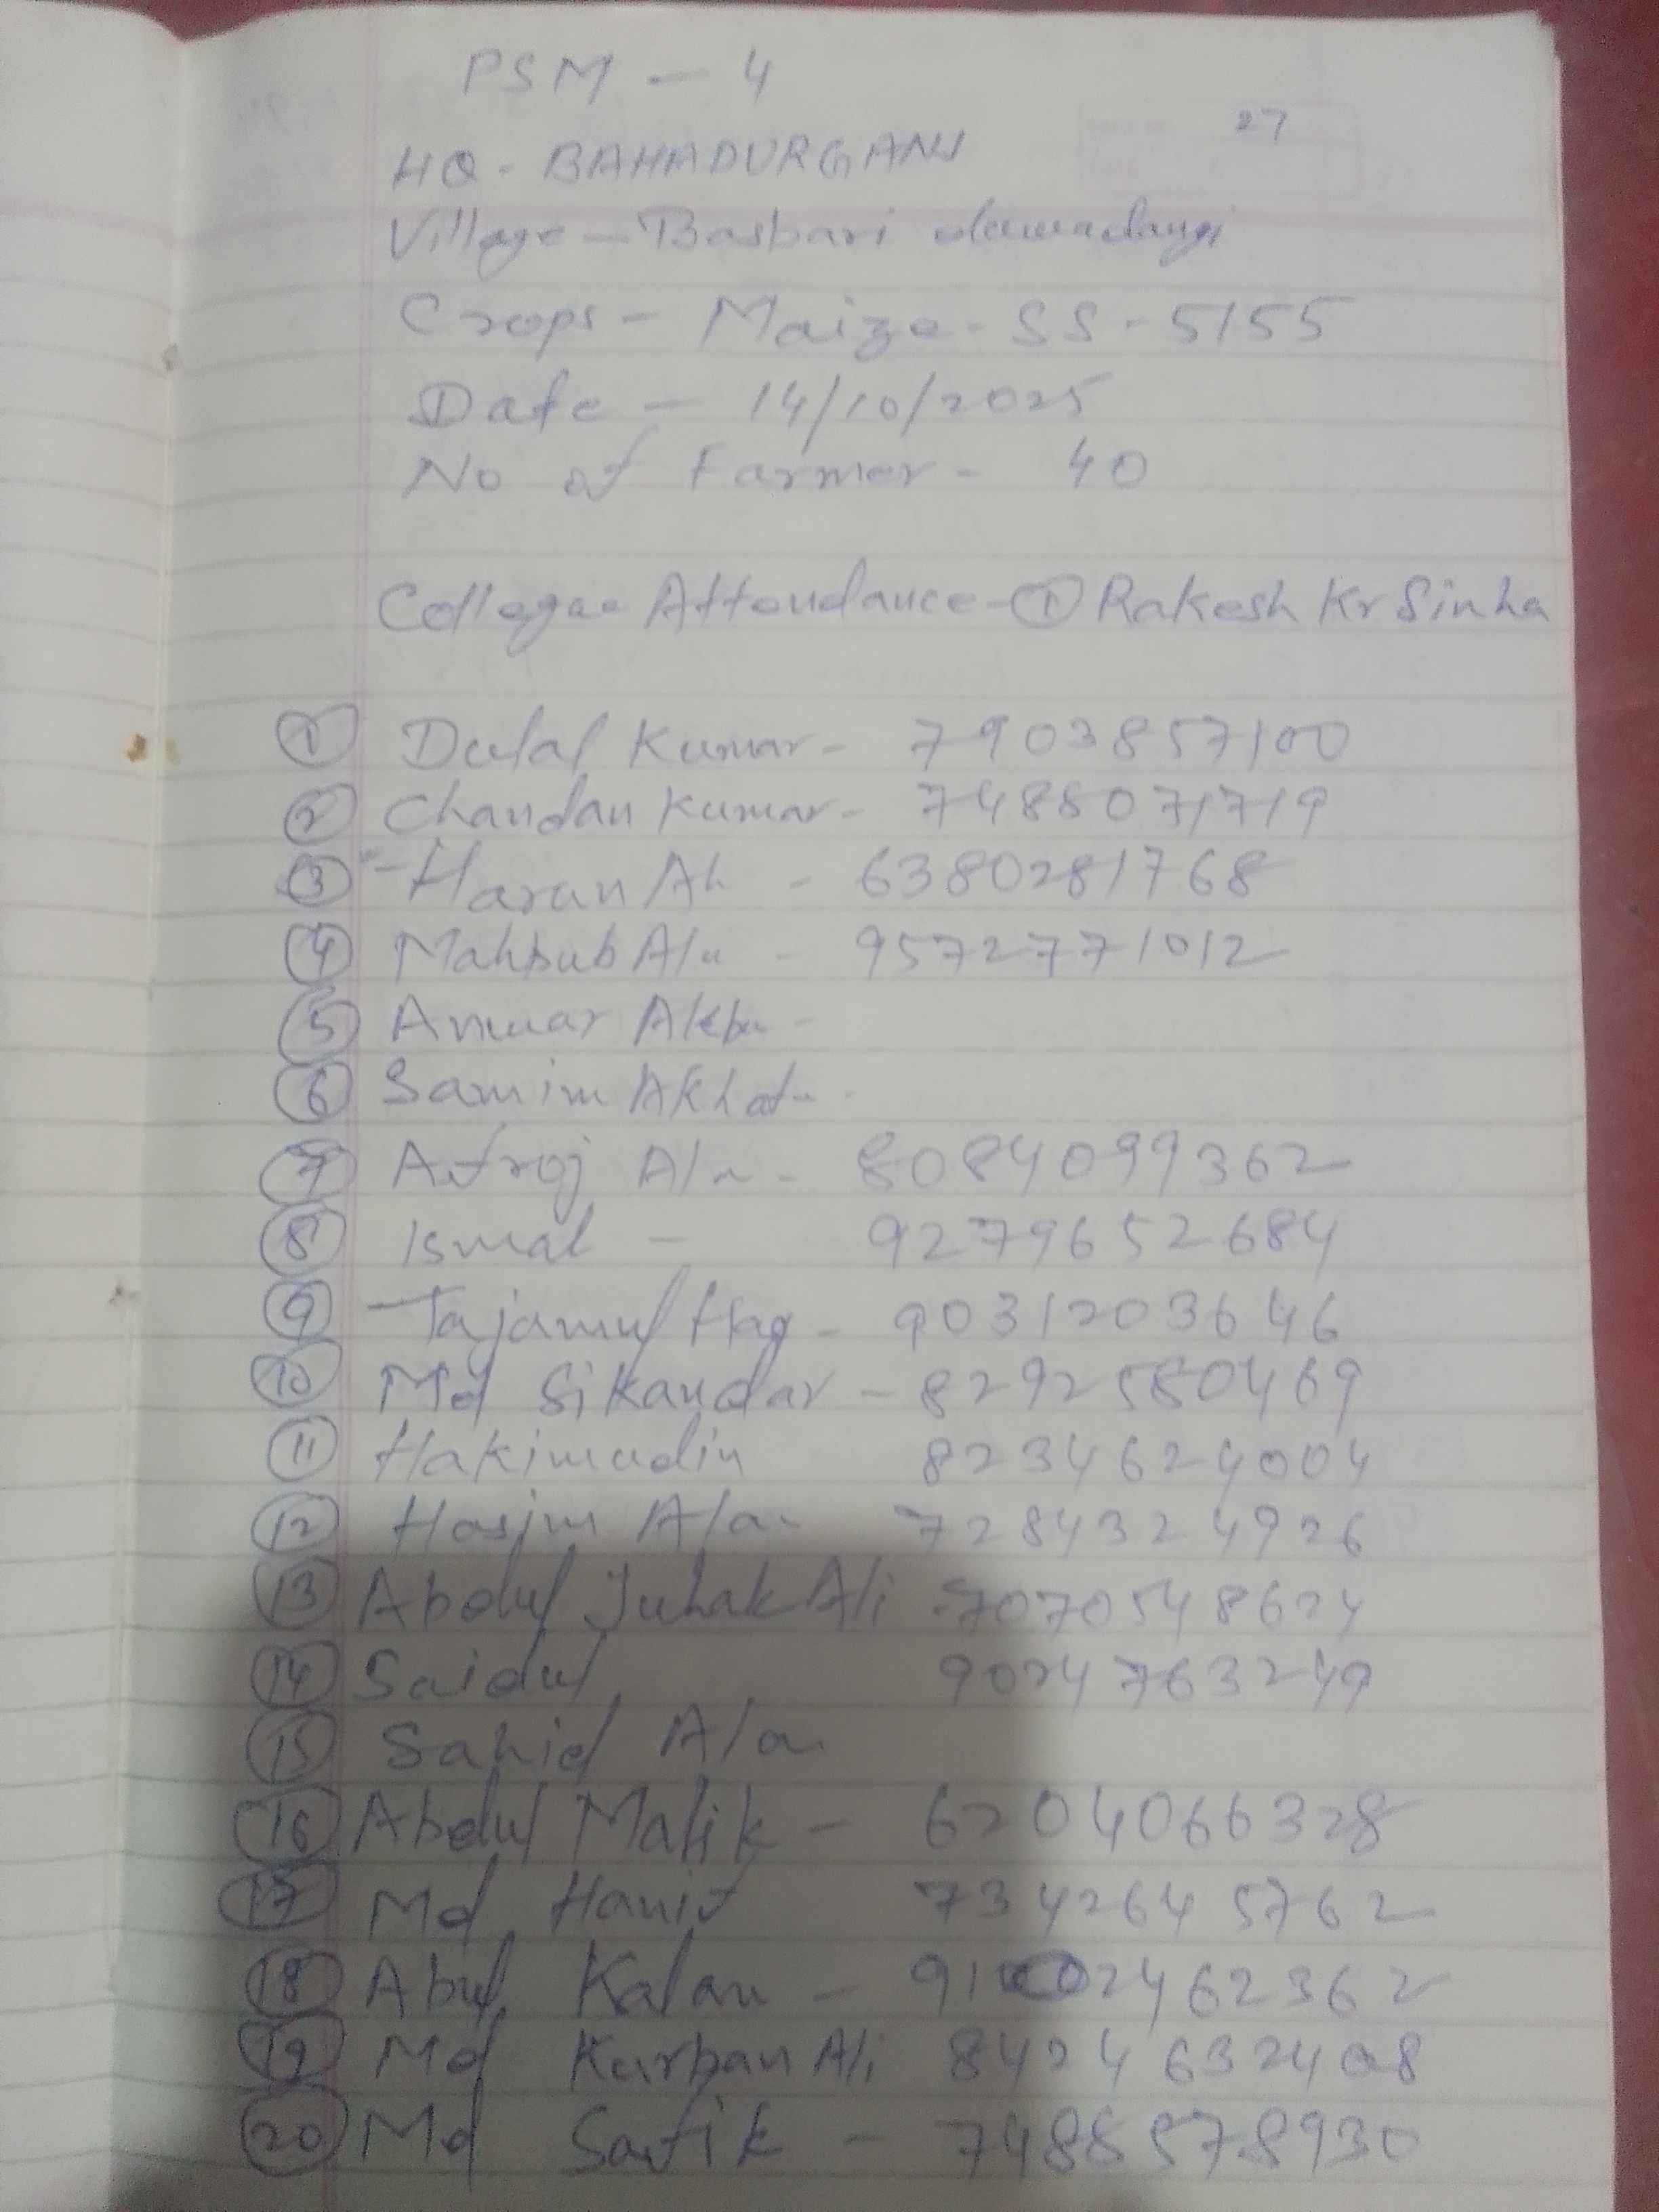 PSM - 4
27
HQ - BAHADURGANJ
Village - Basbari
Crops - Maize - SS - 5155
Date - 14/10/2025
No of Farmer - 40
Collegae Attendance - ① Rakesh Kr Sinha
① Dulal Kumar - 7903857100
② Chandan Kumar - 7488071719
③ Harun - 6380281768
④ Mahbub - 9572771012
⑤ Anwar
⑥ Samim
⑦ Afroj - 8084099362
⑧ Ismal - 9279652684
⑨ Tajamul Haq - 9031203646
⑩ Md Sikandar - 8292580469
⑪ Hakimudin 8234624004
⑫ Hasim 7284324926
⑬ Abdul Juhak Ali - 7070548624
⑭ Saidul 9024763249
⑮ Sahid
⑯ Abdul Malik - 6204066328
⑰ Md Hanif 7342645762
⑱ Abul Kalam -
⑲ Md Kurban Ali 8424632408
⑳ Md Safik - 7488578930